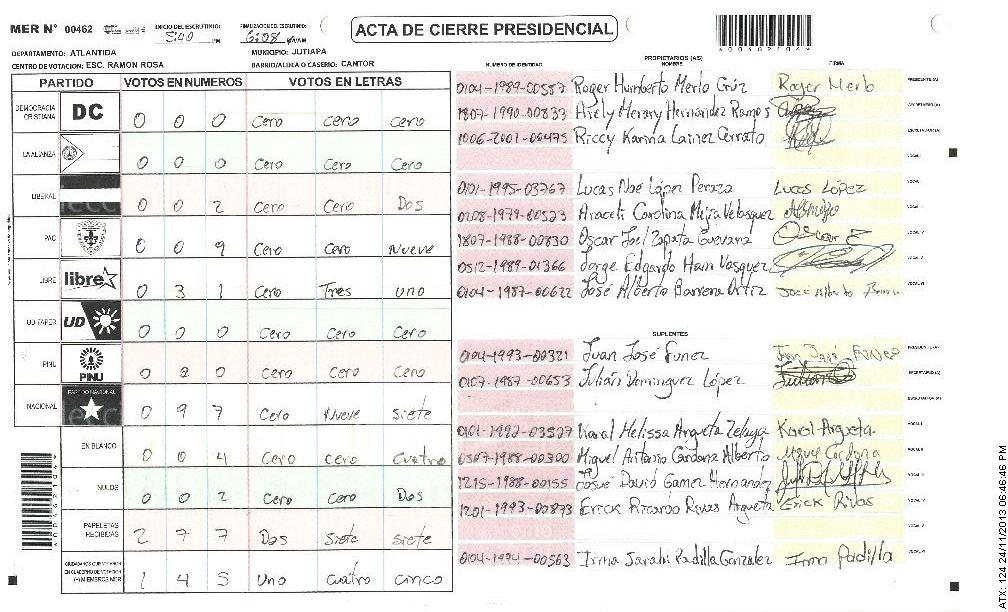 MER N° 00462
INICIO DEL ESCRUTINIO: 5:40 PM
FINALIZACION DEL ESCRUTINIO: 6:08
ACTA DE CIERRE PRESIDENCIAL
DEPARTAMENTO: ATLANTIDA
MUNICIPIO: JUTIAPA
CENTRO DE VOTACION: ESC. RAMON ROSA
BARRIO/ALDEA O CASERIO: CANTOR
PARTIDO VOTOS EN NUMEROS VOTOS EN LETRAS
DEMOCRACIA CRISTIANA DC 0 0 0 Cero cero Cero
LA ALIANZA 0 0 0 Cero Cero Cero
LIBERAL 0 0 2 Cero Cero Dos
PAC 0 0 9 Cero Cero Nueve
LIBRE libre 0 3 1 Cero Tres uno
UD-FAPER UD 0 0 0 Cero Cero Cero
PINU PINU 0 0 0 cero Cero cero
NACIONAL 0 9 7 Cero Nueve siete
EN BLANCO 0 0 4 Cero cero cuatro
NULOS 0 0 2 Cero Cero Dos
PAPELETAS RECIBIDAS 2 7 7 Dos Siete siete
CIUDADANOS QUE VOTARON EN CUADERNO DE VOTACION (+) MIEMBROS MER 1 4 5 Uno Cuatro cinco
PROPIETARIOS (AS)
NUMERO DE IDENTIDAD NOMBRE FIRMA
0104-1989-00587 Roger Humberto Merlo Crúz Roger Merlo PRESIDENTE (A)
1807-1990-00833 Arely Merary Hernandez Ramos SECRETARIO (A)
1006-2001-00475 Riccy Karina Lainez Cerrato ESCRUTADOR (A)
VOCAL I
0101-1995-03767 Lucas Noé López Peraza Lucas López
0208-1979-00523 Araceli Carolina Mejra Velasquez
1807-1988-00830 Oscar Joel Zapata Guevara Oscar Z
0512-1989-01366 Jorge Edgardo Ham Vasquez
0104-1987-00622 José Alberto Barrera Ortiz José Alberto
SUPLENTES
0104-1993-00321 Juan José Funez PRESIDENTE (A)
0107-1987-00653 Julián Dominguez López Julian SECRETARIO (A)
ESCRUTADOR (A)
0101-1992-03527 Karol Melissa Argueta Zelaya Karol Argueta
0507-1988-00300 Miguel Antonio Cardona Alberto Miguel Cardona
1215-1988-00155 Josué David Gamez Hernandez
1201-1993-00873 Erick Ricardo Rivas Argueta Erick Rivas
0104-1994-00563 Irma Sarahi Padilla Gonzalez Irma Padilla
ATX: 124 24/11/2013 06:46:46 PM